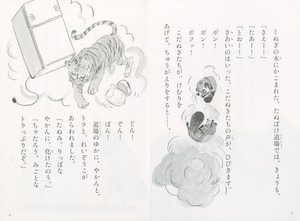 くぬぎの木にかこまれた、たぬばけ道場では、きょうも、
「きえー!」
「とおー!」
「たあ!」
きあいのはいった、こだぬきたちの声が、ひびきます!
ポン!
ポン!
ポフッ!
こだぬきたちが、けむりを
あげて、ちゅうがえりをすると……。
どん!
でん!
ばん!
道場のゆかに、やかんと、
トラと、れいぞうこが
あらわれました。
「たぬみ、りっぱな
やかんに、化けたのう。」
「ちゃたろう、みごとな
トラっぷりだぞ。」